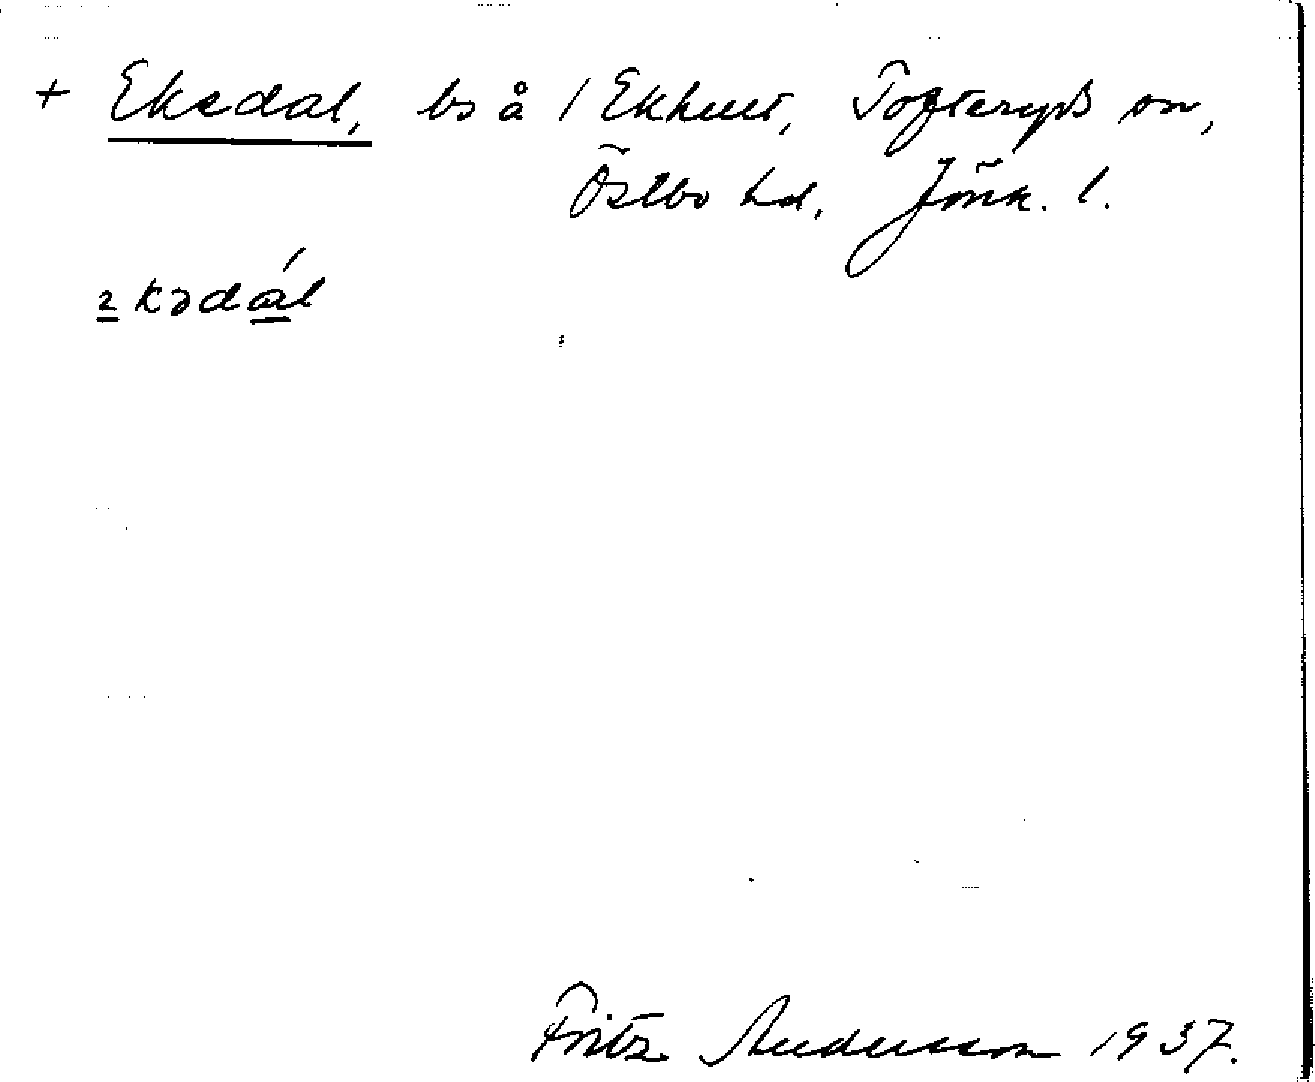 + Ekedal, bs å 1 Ekhult, Tofteryds sn,
Östbo hd, Jönk. l.
Fritz Andersson 1937.